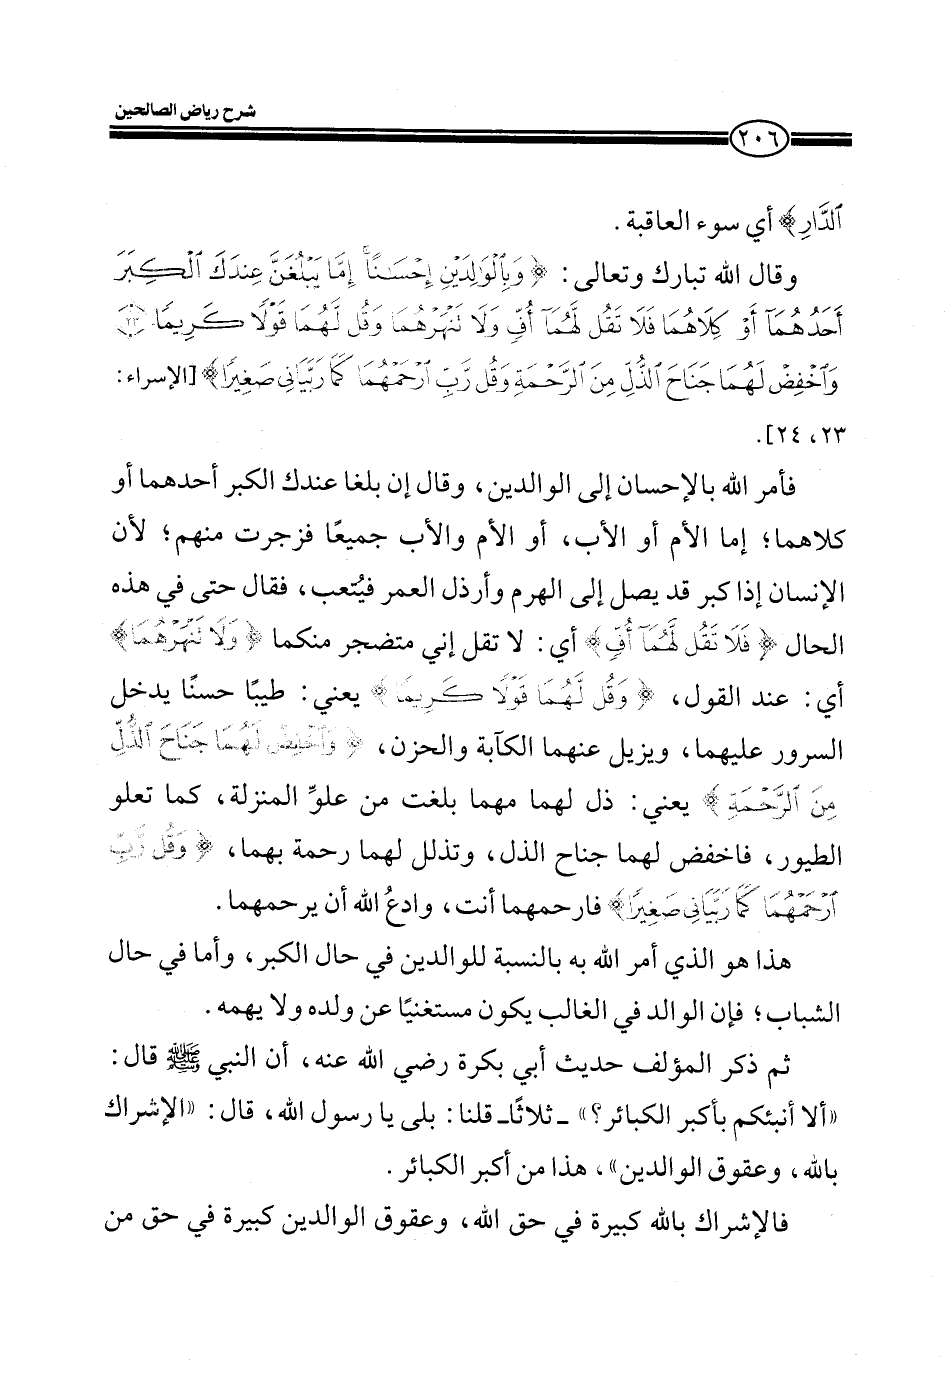 شرح رياض الصالحين
٢٠٦
ٱلدَّارِ﴾ أي سوء العاقبة .
وقال الله تبارك وتعالى : ﴿ وَبِٱلْوَٰلِدَيْنِ إِحْسَٰنًا ۚ إِمَّا يَبْلُغَنَّ عِندَكَ ٱلْكِبَرَ
أَحَدُهُمَآ أَوْ كِلَاهُمَا فَلَا تَقُل لَّهُمَآ أُفٍّ وَلَا نَنْهَرْهُمَا وَقُل لَّهُمَا قَوْلًا كَرِيمًا ﴿٢٣﴾
وَٱخْفِضْ لَهُمَا جَنَاحَ ٱلذُّلِّ مِنَ ٱلرَّحْمَةِ وَقُل رَّبِّ ٱرْحَمْهُمَا كَمَا رَبَّيَانِي صَغِيرًا﴾ [الإسراء :
٢٣، ٢٤].
فأمر الله بالإحسان إلى الوالدين، وقال إن بلغا عندك الكبر أحدهما أو
كلاهما؛ إما الأم أو الأب، أو الأم والأب جميعًا فزجرت منهم؛ لأن
الإنسان إذا كبر قد يصل إلى الهرم وأرذل العمر فيُتعب، فقال حتى في هذه
الحال ﴿ فَلَا تَقُل لَّهُمَآ أُفٍّ ﴾ أي : لا تقل إني متضجر منكما ﴿ وَلَا نَنْهَرْهُمَا ﴾
أي : عند القول، ﴿ وَقُل لَّهُمَا قَوْلًا كَرِيمًا ﴾ يعني : طيبًا حسنًا يدخل
السرور عليهما، ويزيل عنهما الكآبة والحزن، ﴿ وَٱخْفِضْ لَهُمَا جَنَاحَ ٱلذُّلِّ
مِنَ ٱلرَّحْمَةِ ﴾ يعني : ذل لهما مهما بلغت من علوِّ المنزلة، كما تعلو
الطيور، فاخفض لهما جناح الذل، وتذلل لهما رحمة بهما، ﴿ وَقُل رَّبِّ
ٱرْحَمْهُمَا كَمَا رَبَّيَانِي صَغِيرًا﴾ فارحمهما أنت، وادعُ الله أن يرحمهما .
هذا هو الذي أمر الله به بالنسبة للوالدين في حال الكبر، وأما في حال
الشباب؛ فإن الوالد في الغالب يكون مستغنيًا عن ولده ولا يهمه .
ثم ذكر المؤلف حديث أبي بكرة رضي الله عنه، أن النبي ﷺ قال :
«ألا أنبئكم بأكبر الكبائر؟» ـ ثلاثًا ـ قلنا : بلى يا رسول الله، قال : «الإشراك
بالله، وعقوق الوالدين»، هذا من أكبر الكبائر .
فالإشراك بالله كبيرة في حق الله، وعقوق الوالدين كبيرة في حق من